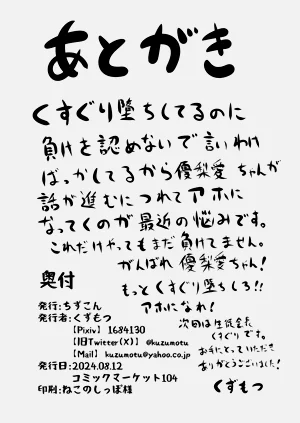 あとがき
くすぐり堕ちしてるのに
負けを認めないで言いわけ
ばっかしてるから優梨愛ちゃんが
話が進むにつれてアホに
なってくのが最近の悩みです。
これだけやってもまだ負けてません。
がんばれ優梨愛ちゃん！
もっとくすぐり堕ちしろ!!
アホになれ！
次回は生徒会長
くすぐりです。
お手にとっていただき
ありがとうございました！
くずもつ
奥付
発行:ちずこん
発行者:くずもつ
【Pixiv】 1684130
【旧Twitter(X)】 @kuzumotu
【Mail】 kuzumotu@yahoo.co.jp
発行日:2024.08.12
コミックマーケット104
印刷:ねこのしっぽ様